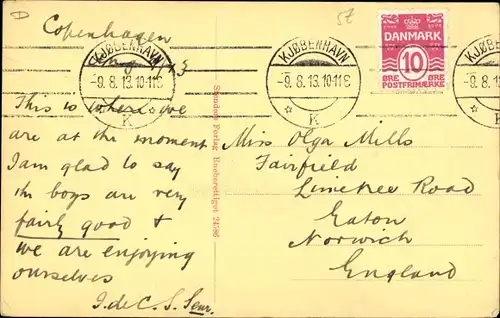 D
Copenhagen
Aug 13
This is where we
are at the moment
I am glad to say
the boys are very
fairly good &
we are enjoying
ourselves
I. de C. S. Senr.
KJØBENHAVN
-9.8.13.10-11E
K
KJØBENHAVN
-9.8.13.10-11E
K
KJØ
-9.8
K
DANMARK
10
ØRE ØRE
POSTFRIMÆRKE
Stenders Forlag Eneberettiget 24386
Miss Olga Mills
Fairfield
Limetree Road
Eaton
Norwich
England